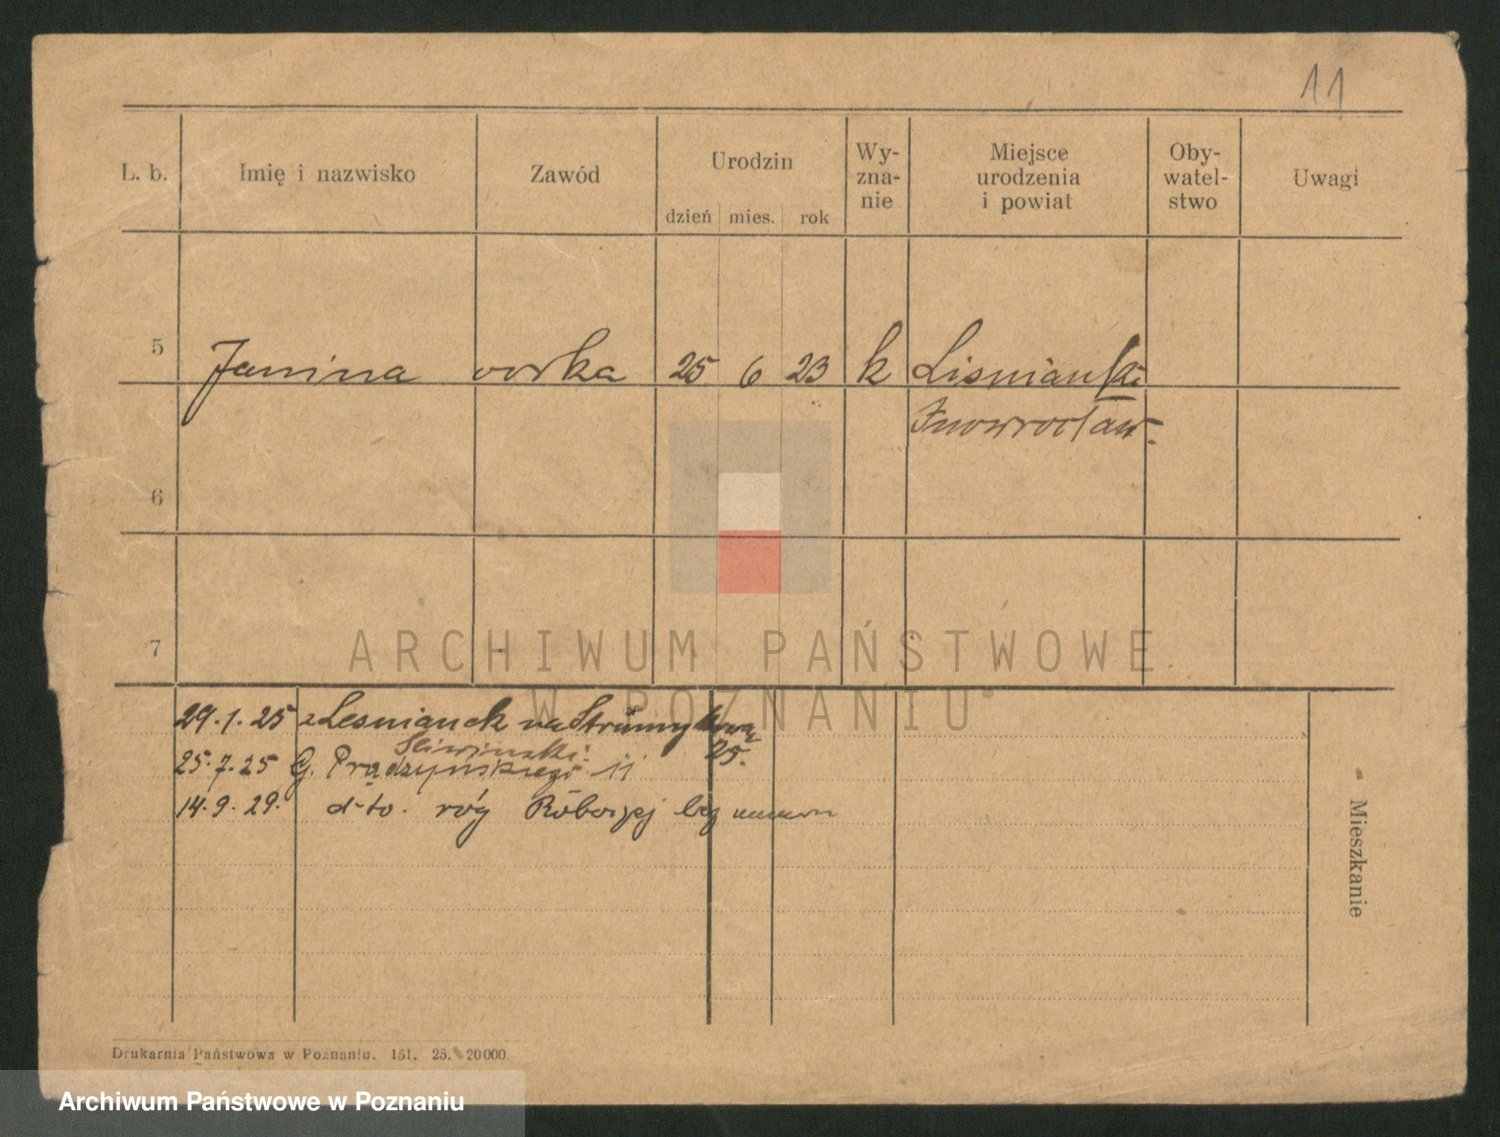 11
L. b. Imię i nazwisko Zawód Urodzin Wy-zna-nie Miejsce urodzenia i powiat Oby-watel-stwo Uwagi
dzień mies. rok
5 Janina 25 6 23 k Lisnianki
Inowrocław.
6
7
ARCHIWUM PAŃSTWOWE
W POZNANIU
29.1.25 z Lesnianek na Strumykową
25.
Sliwinski
25.7.25 G. Prądzyńskiego 11
14.9.29. d-to. róg Roboczej bez numeru
Mieszkanie
Drukarnia Państwowa w Poznaniu. 151. 25. 20000
Archiwum Państwowe w Poznaniu